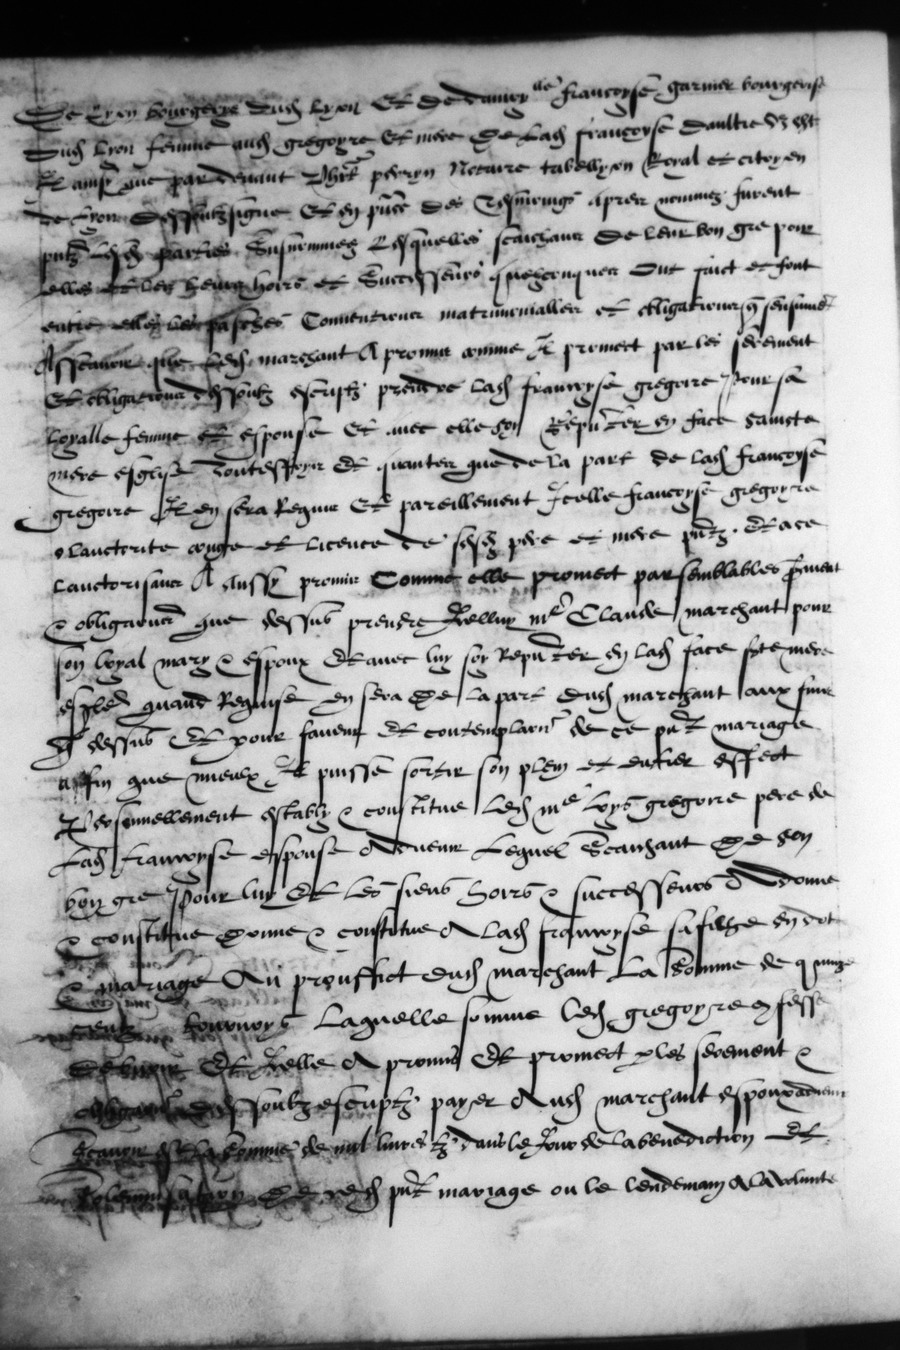 de Lyon bourgeoys dud Lyon Et de damoylle francoyse garnier bourgeoise
dud Lyon femme aud gregoyre Et mere de lad francoyse daultre
Et ainsy que par devant perryn Notaire tabellyon Royal et citoyen
de Lyon dessoubzsigne Et en pnce des tesmoings apres nommez furent
pntz lesd parties susnommez Lesquelles scaichans de leur bon gre pour
elles et les leurs hoirs et successeurs quelzconques Ont faict et font
entre elles les pasches Conventions matrimonialles et obligations q sensuivent
Assavoir que led marchant A promis comme Il promect par les serement
Et obligations dessoubz escriptz prendre lad francoyse gregoire pour sa
loyalle femme et espouse Et avec elle soy en face saincte
mere esglise touteffoys Et quantes que de la part de lad francoyse
gregoire Il en sera Requis Et pareillement Icelle francoyse gregoyre
o lauctorite conge et licence de sesd pere et mere pntz Et a ce
lauctorisans A aussy promis Comme elle promect par semblables serment
& obligations que dessus prendre Icelluy me Claude marchant pour
son loyal mary & espoux Et avec luy soy en lad face ste mere
quand Requise en sera de la part dud marchant aux
dessus Et pour faveur Et contemplaon de ce pnt mariage
affin que mieulx Il puisse sortir son plein et entier effect
Personnellement estably & constitue led me loys gregoire pere de
Lad francoyse espouse advenir Lequel Scaichant de son
bon gre pour luy Et les siens hoirs & successeurs A donne
& constitue donne & constitue A lad francoyse sa filhe en dot
& mariage Au prouffict dud marchant La Somme de quinze
cens tournoys Laquelle somme led gregoyre
Et Icelle A promis Et promect p les serement &
dessoubz escriptz payer Aud marchant espoux advenir
Scavoir est La somme de mil livres tz dans le Jour de la benediction Et
dud pnt mariage ou le lendemain A la volunte